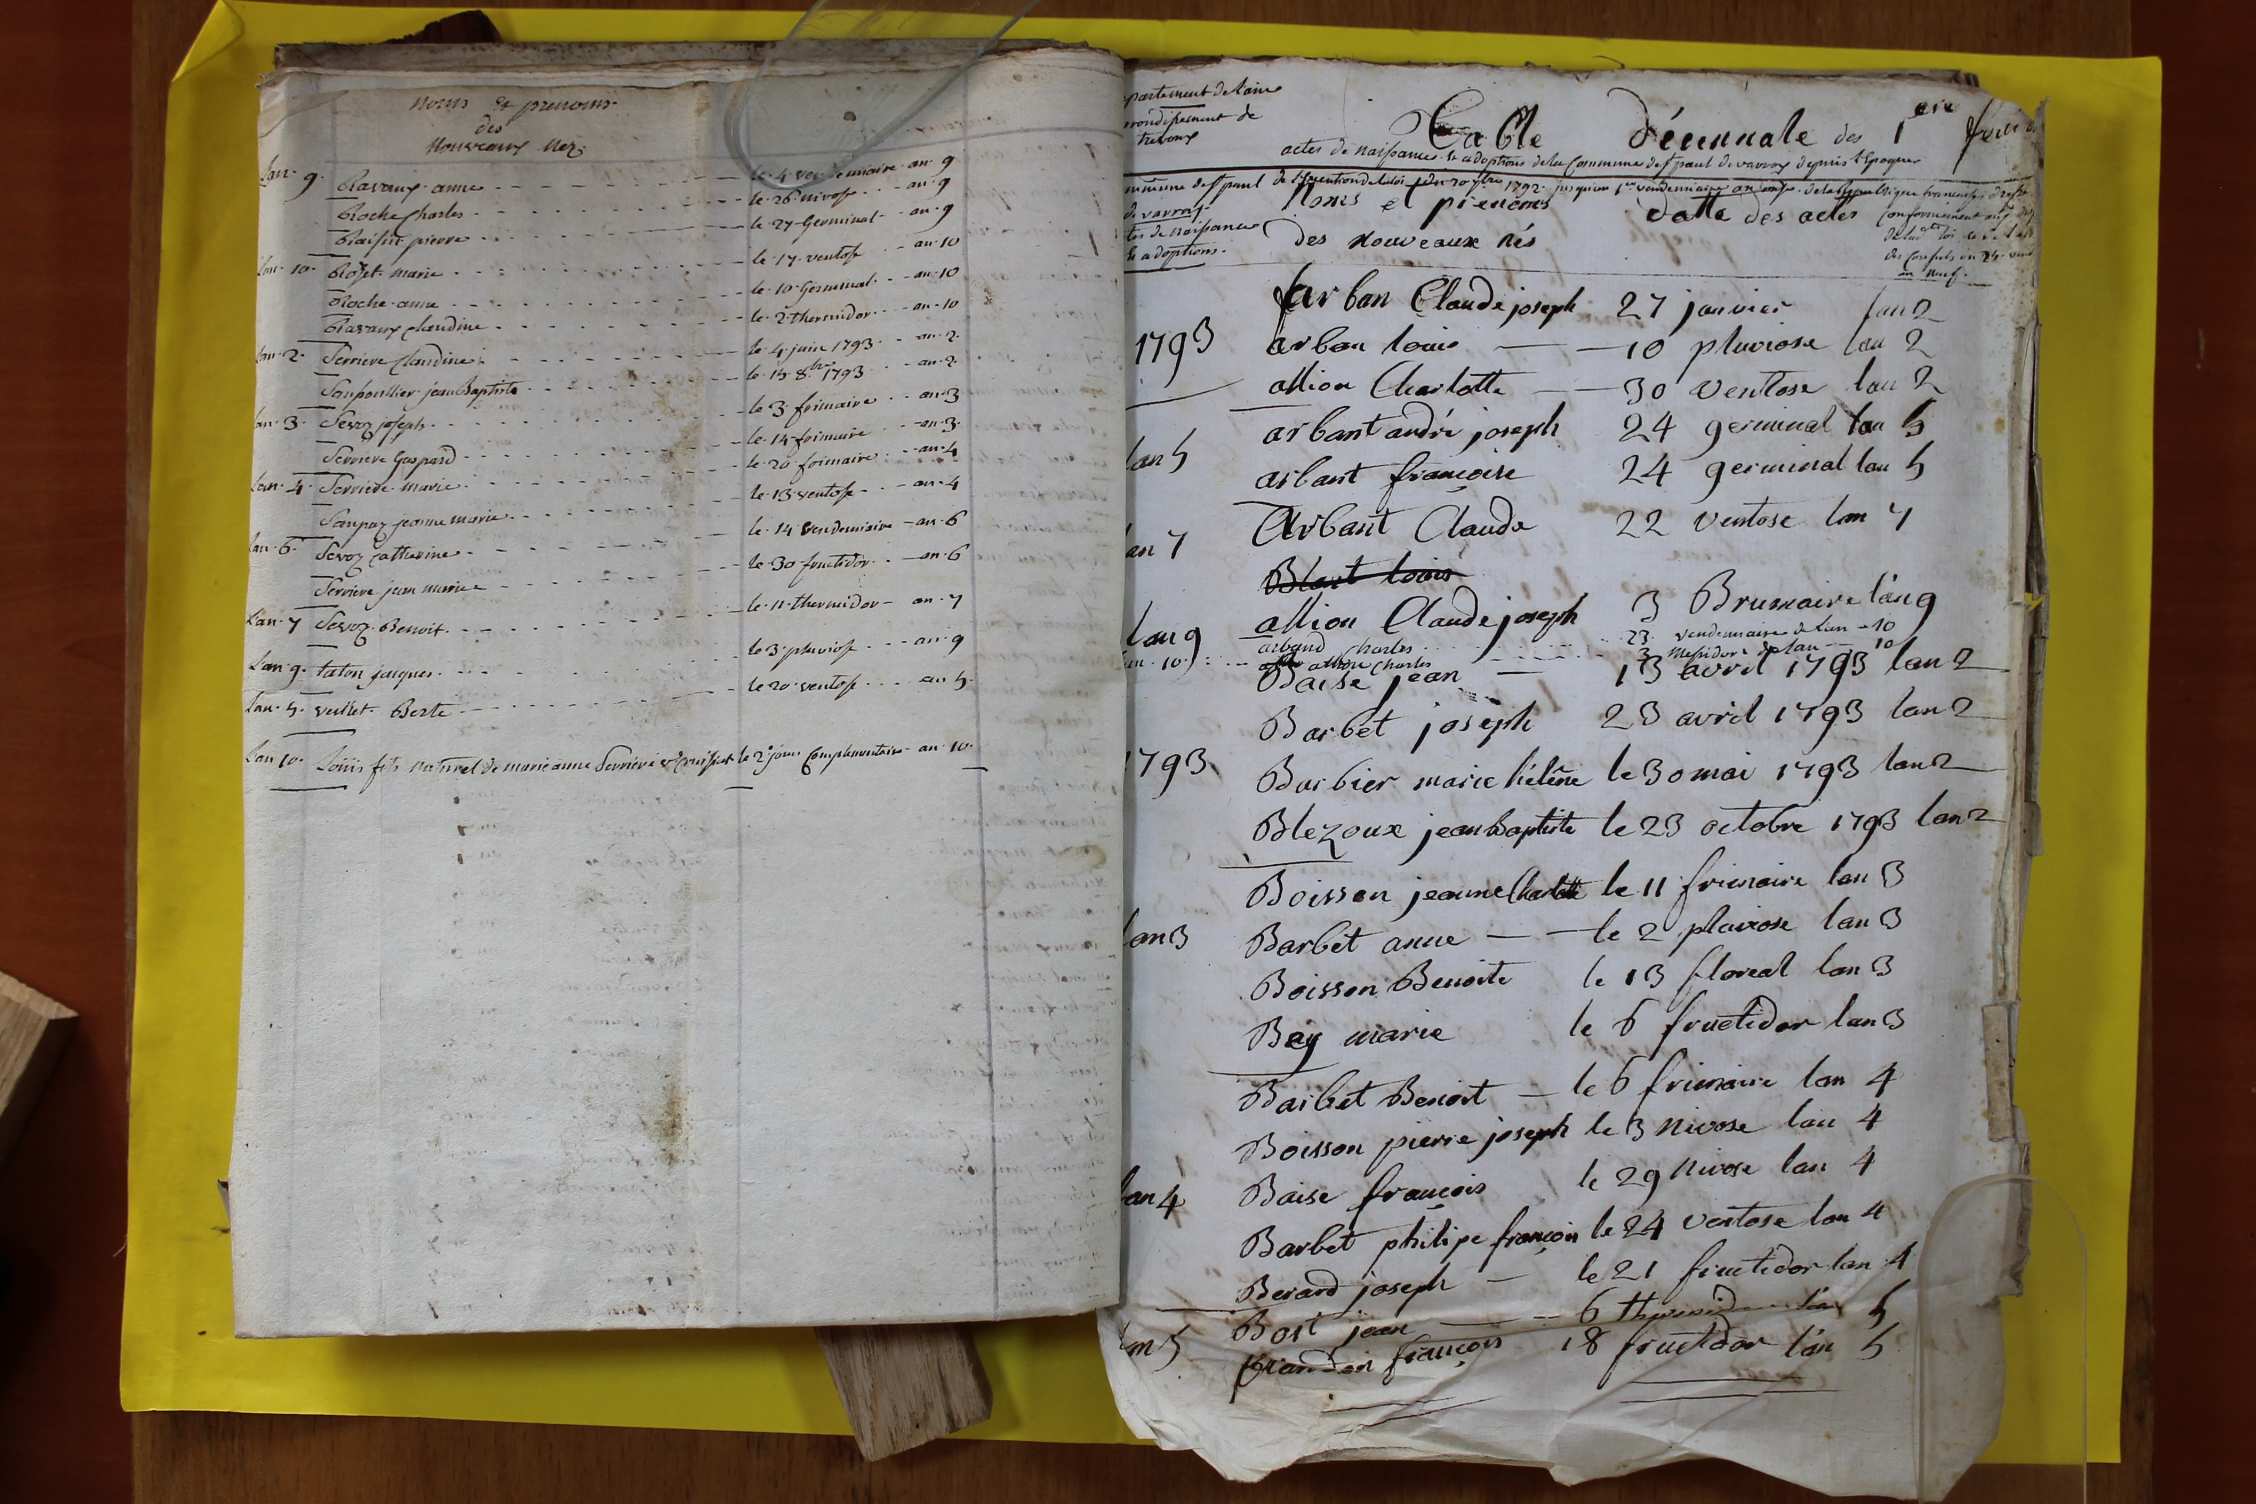 noms et prenoms
des
Nouveaux Nez
Lan 9. Ravaux anne le 4 vendemiaire an 9
Roche Charles le 26 nivose an 9
Raisin pierre le 27 Germinal an 9
Lan 10. marie le 17 ventose an 10
Roche anne le 10 Germinal an 10
Ravaux Claudine le 2 thermidor an 10
Lan 2. Serriere Claudine le 4 juin 1793 an 2
jean Baptiste le 15 8bre 1793 an 2
Lan 3. Sevoz joseph le 3 frimaire an 3
Serriere Gaspard le 14 frimaire an 3
Lan 4. Serriere marie le 20 frimaire an 4
jeanne marie le 13 ventose an 4
Lan 6. Sevoz Catherine le 14 vendemiaire an 6
Serriere jean marie le 30 fructidor an 6
Lan 7 Sevoz Benoit le 11 thermidor an 7
Lan 9. taton jacques le 3 pluviose an 9
Lan 5. vullet le 20 ventose an 5
Lan 10. Louis fils naturel de marie anne Serriere le 2e jour Complementaire an 10
partement de lain
rondissement de
trevoux
Table Décennale des 1ere
actes de naissances & adoptions de la Commune de st paul de varax depuis l'Epoque
mmune de st paul de l'Execution de la loi du 20 7bre 1792 jusqu'au 1er vendemiaire an onze de la Republique francaise
de varax
Noms et prenoms datte des actes conformement
tes de naissances
& adoptions.
des nouveaux nés
des consuls du 25
an neuf.
arban Claude joseph 27 janvier lan 2
1793 arban louis 10 pluviose lan 2
allion Charlotte 30 ventose lan 2
arbant andré joseph 24 germinal lan 5
lan 5 arbant françoise 24 germinal lan 5
lan 7 Arbant Claude 22 ventose lan 7
Blast louis
lan 9 allion Claude joseph 3 Brumaire l'an 9
an 10. arband Charles 23 vendemiaire de lan 10
Charles 3 Messidor de lan 10
Baise jean 13 avril 1793 lan 2
Barbet joseph 23 avril 1793 lan 2
1793 Barbier marie hélène le 30 mai 1793 lan 2
Blezoux jean Baptiste le 23 octobre 1793 lan 2
Boisson jeanne Charlotte le 11 frimaire lan 3
lan 3 Barbet anne le 2 pluviose lan 3
Boisson Benoite le 13 floreal lan 3
Bey marie le 6 fructidor lan 3
Barbet Benoit le 6 frimaire lan 4
Boisson pierre joseph le 3 Nivose lan 4
lan 4 Baise françois le 29 Nivose lan 4
Barbet philipe françois le 24 ventose lan 4
Berard joseph le 21 fructidor lan 4
lan 5 Bost jean 6 thermidor l'an 5
françois 18 fructidor l'an 5